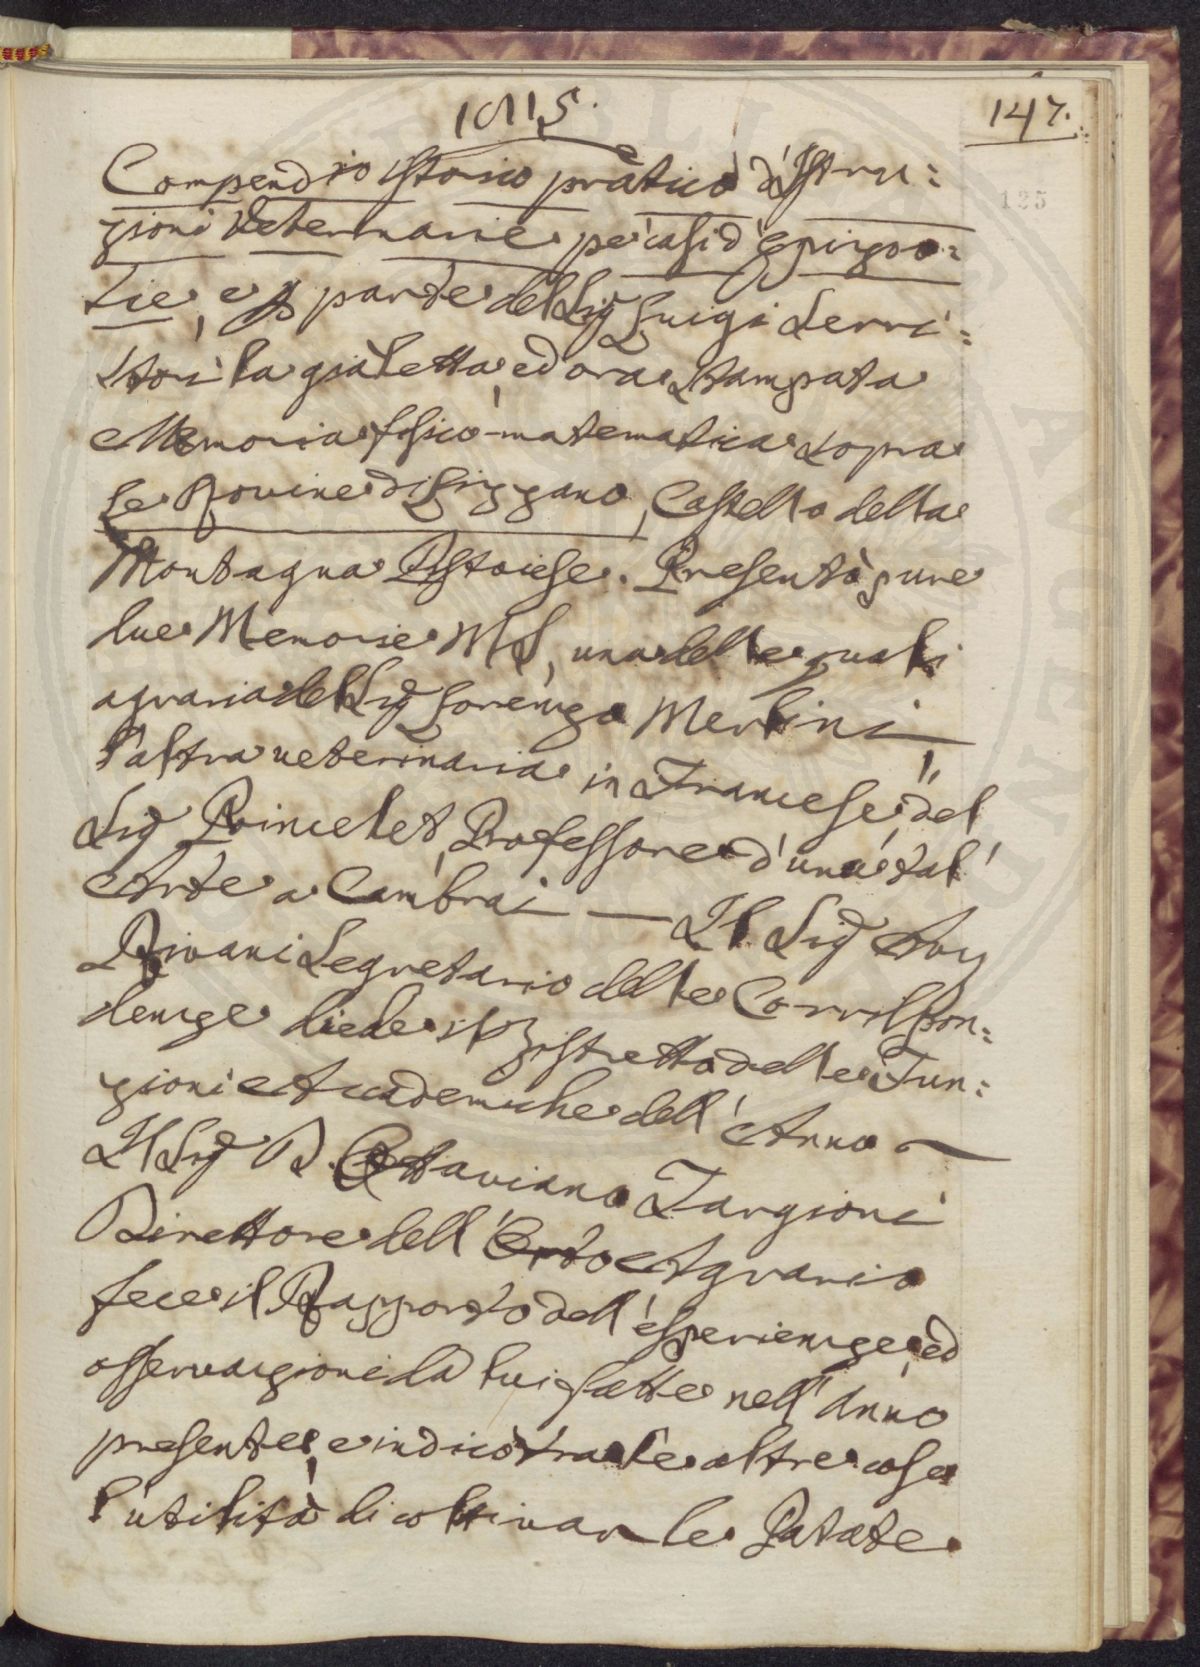 1815.
147.
125
Compendio istorico pratico d'Istru=
zioni Veterinarie pe' casi d'Epizoo=
tie, e p parte del Sig Luigi Serri=
stori la già letta, ed ora stampata
Memoria fisico-matematica sopra
le Rovine di Lizzano, Castello della
Montagna Pistoiese. Presentò pure
due Memorie MS, una delle quali
agraria del Sig Lorenzo Merlini
l'altra veterinaria in Francese del
Sig Poincelet, Professore d'una tal'
Arte a Cambrai — Il Sig Avv
Rivani Segretario delle Corrispon=
denze diede il Ristretto delle Fun=
zioni Accademiche dell'Anno —
Il Sig D. Ottaviano Targioni
Direttore dell'Orto Agrario
fece il Rapporto dell'esperienze, ed
osservazioni da lui fatte nell'Anno
presente, e indicò tra le altre cose
l'utilità di coltivar le Patate